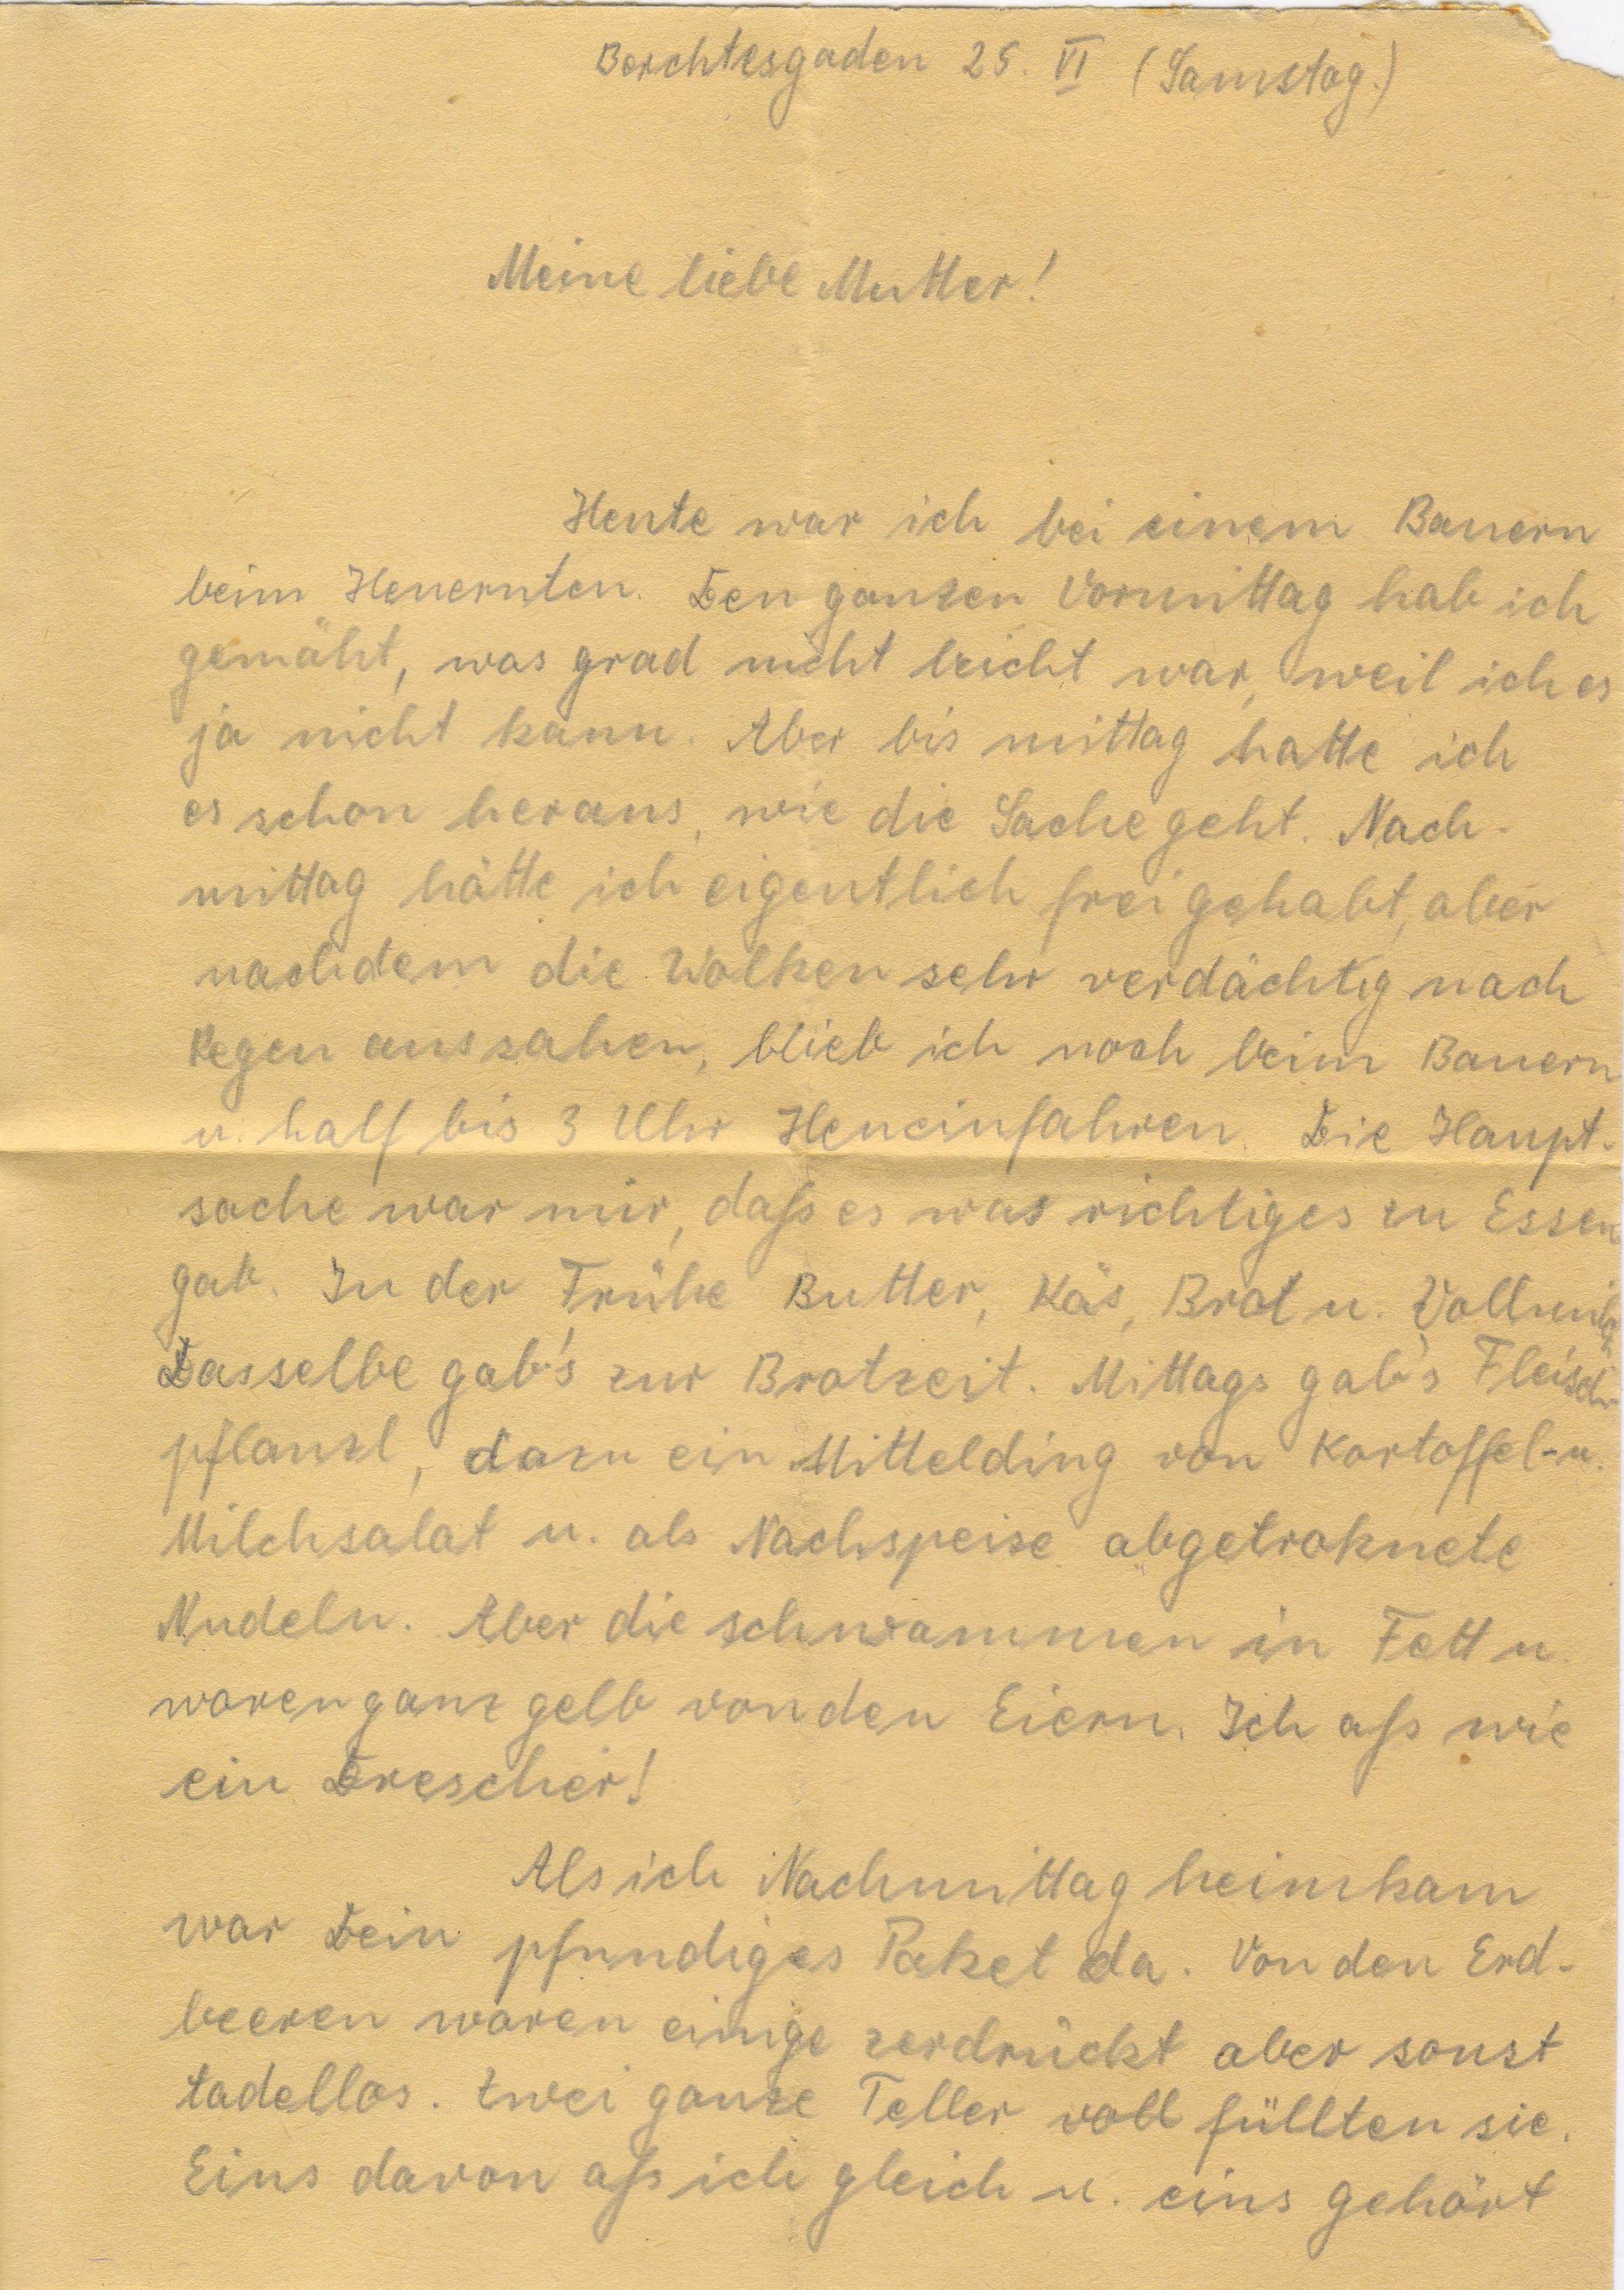 Berchtesgaden 25. VI (Samstag.)
Meine liebe Mutter!
Heute war ich bei einem Bauern
beim Heuernten. Den ganzen Vormittag hab ich
gemäht, was grad nicht leicht war, weil ich es
ja nicht kann. Aber bis mittag hatte ich
es schon heraus, wie die Sache geht. Nach-
mittag hätte ich eigentlich frei gehabt, aber
nachdem die Wolken sehr verdächtig nach
Regen aussahen, blieb ich noch beim Bauern
u. half bis 3 Uhr Heueinfahren. Die Haupt-
sache war mir, dass es was richtiges zu Essen
gab. In der Frühe Butter, Käs, Brot u. Vollmilch
Dasselbe gab's zur Brotzeit. Mittags gab's Fleisch-
pflanzl, dazu ein Mittelding von Kartoffel- u.
Milchsalat u. als Nachspeise abgetroknete
Nudeln. Aber die schwammen in Fett u.
waren ganz gelb von den Eiern. Ich ass wie
ein Drescher!
Als ich Nachmittag heimkam
war Dein pfundiges Paket da. Von den Erd-
beeren waren einige zerdrückt aber sonst
tadellos. Zwei ganze Teller voll füllten sie.
Eins davon ass ich gleich u. eins gehört